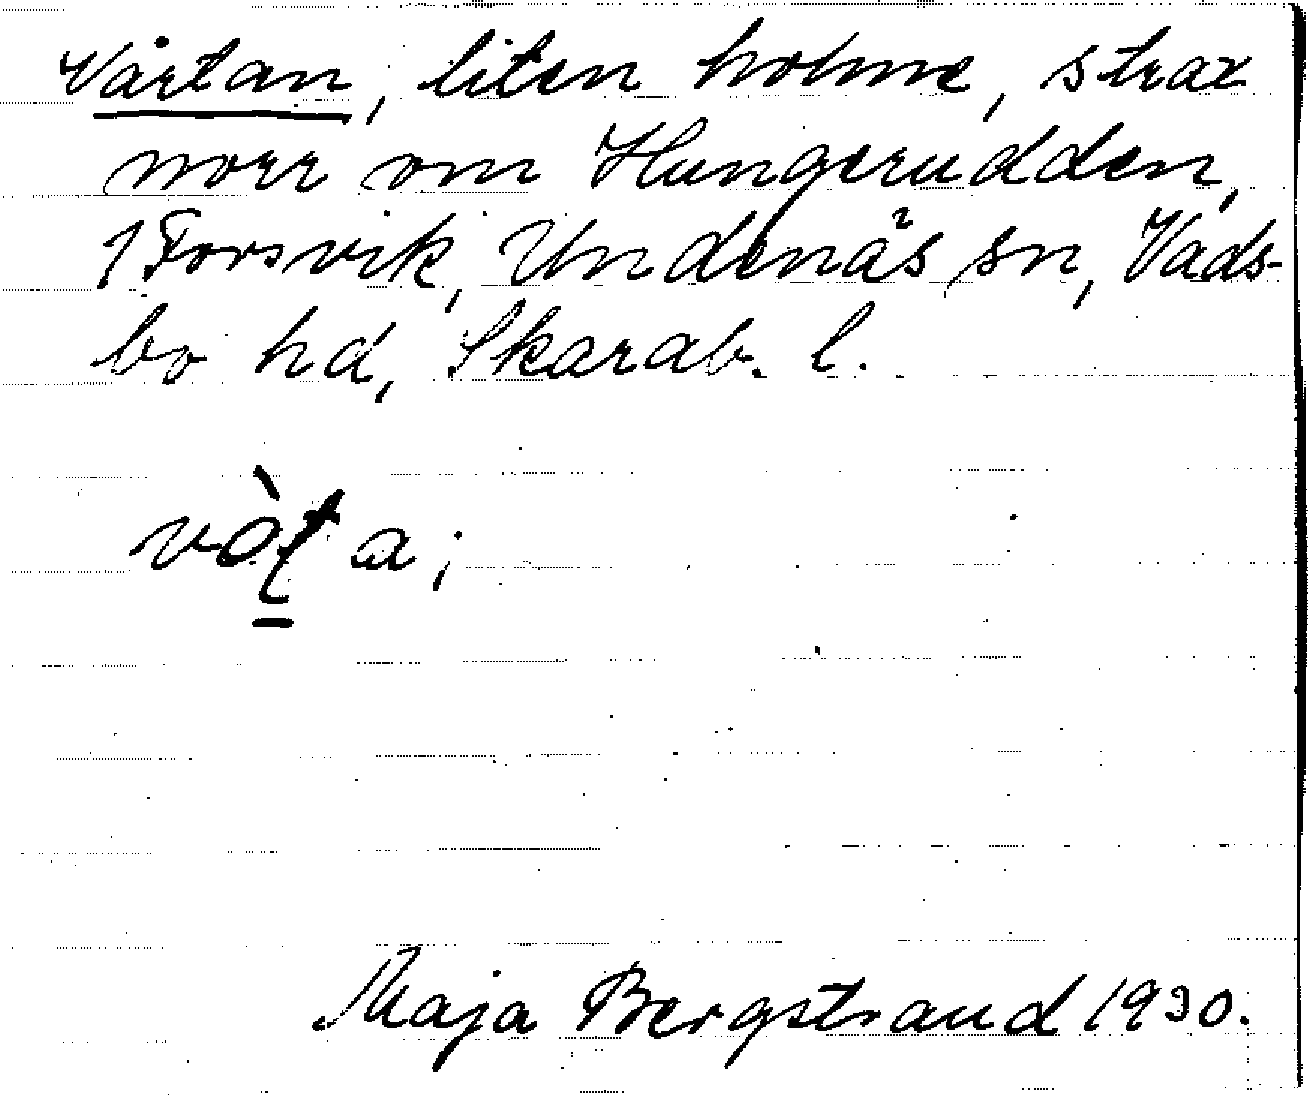 Vårtan, liten holme, strax
norr om Hungerudden,
1 Forsvik, Undenäs sn, Vads-
bo hd, Skarab. l.
a;
Maja Bergstrand 1930.